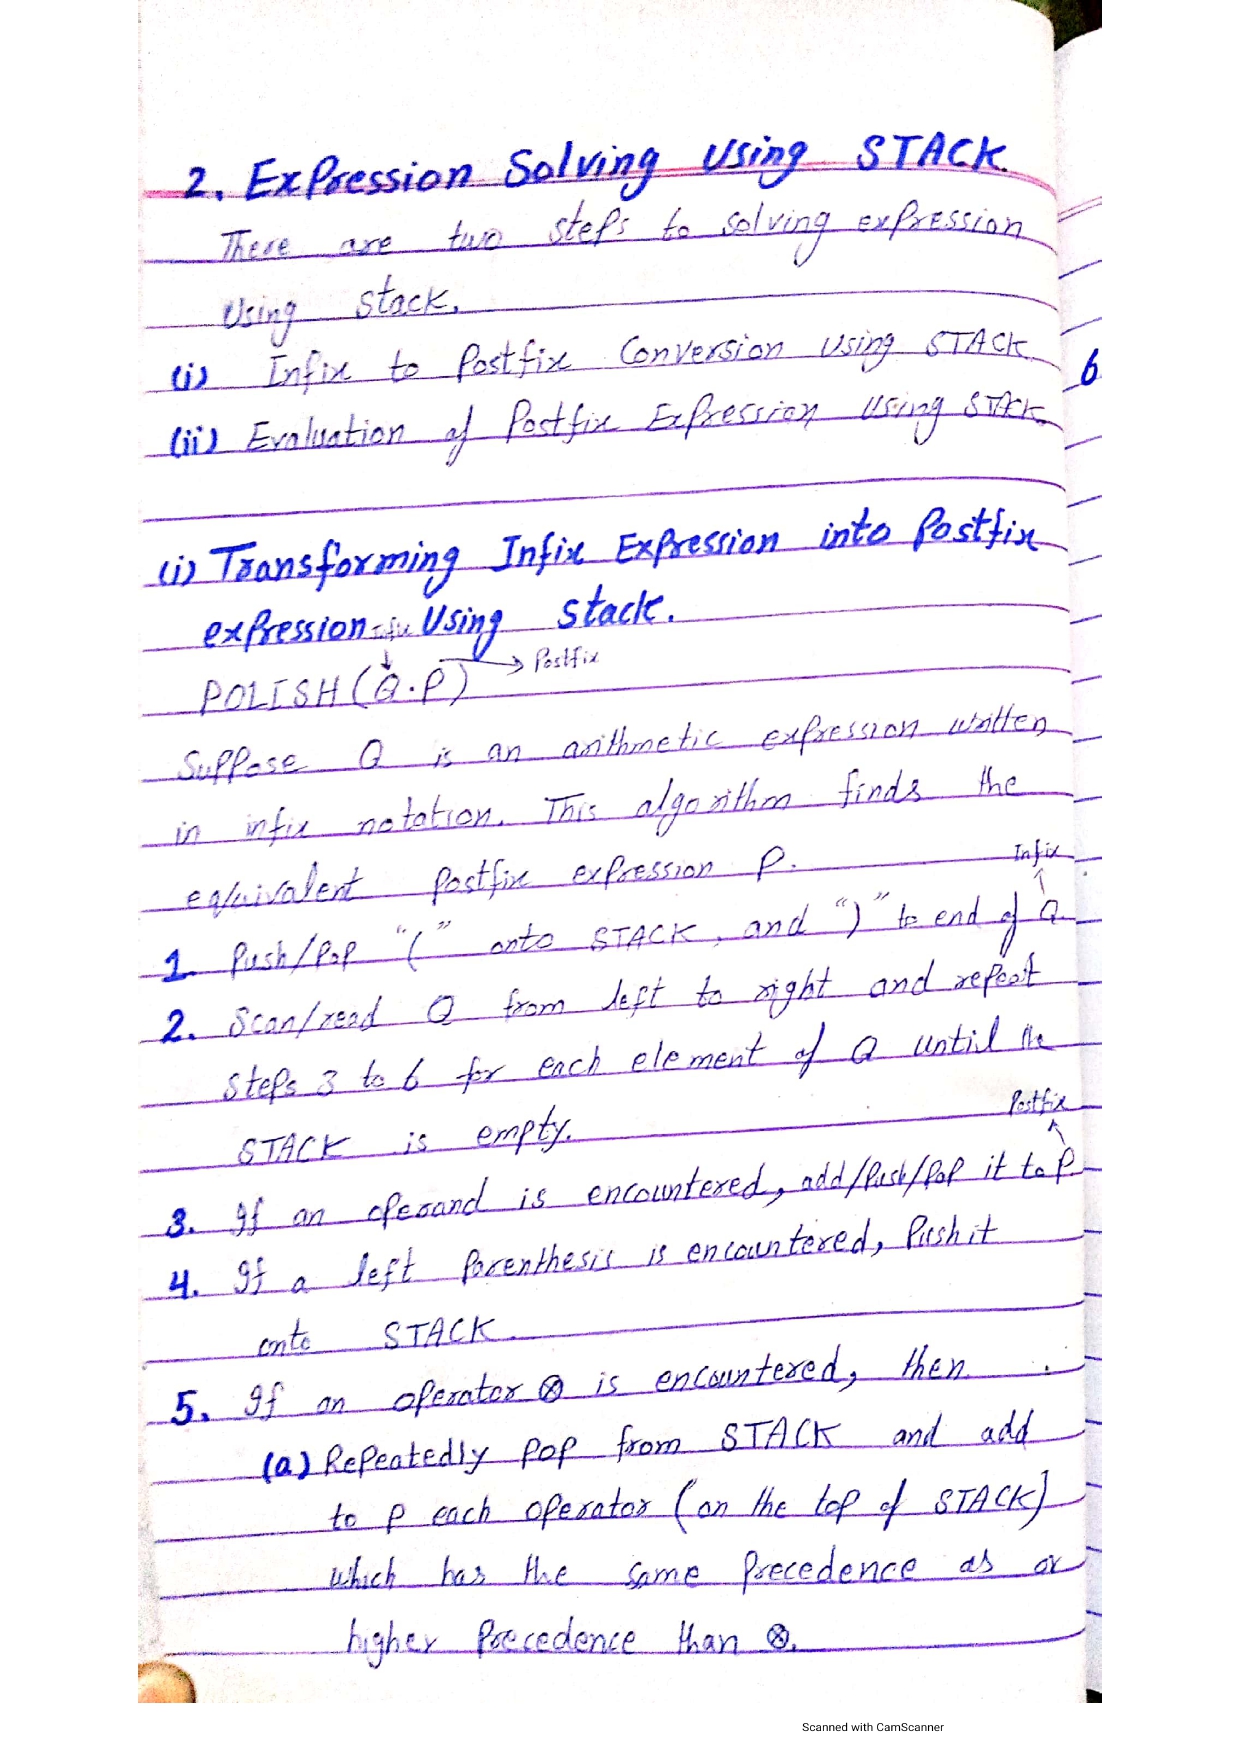 2. Expression Solving Using STACK.
There are two steps to solving expression
Using Stack.
(i) Infix to Postfix Conversion Using STACK
(ii) Evaluation of Postfix Expression Using STACK
6
(i) Transforming Infix Expression into Postfix
expression Using Stack.
Infix
Postfix
POLISH (Q.P)
Suppose Q is an arithmetic expression written
in infix notation. This algorithm finds the
equivalent Postfix expression P.
Infix
1. Push/Pop "(" onto STACK, and ")" to end of Q
2. Scan/read Q from left to right and repeat
Steps 3 to 6 for each element of Q until the
STACK is empty.
Postfix
3. If an operand is encountered, add/Push/Pop it to P
4. If a left Parenthesis is encountered, Push it
onto STACK.
5. If an operator ⊗ is encountered, then
(a) Repeatedly Pop from STACK and add
to P each operator (on the top of STACK)
which has the same Precedence as or
higher Precedence than ⊗.
Scanned with CamScanner